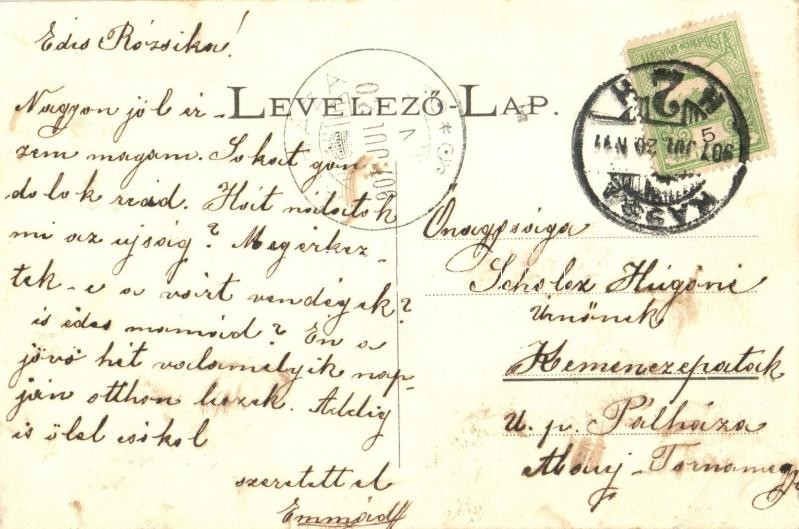 Edes Rózsika!
Nagyon jól ér-
zem magam. Sokat gon
dolok reád. Hát nálatok
mi az ujság? Megérkez-
tek-e a várt vendégek?
is édes mamád? Én a
jövő hét valamelyik nap-
ján otthon leszek. Addig
is ölel csókol
szeretettel
Emmád
LEVELEZŐ-LAP.
MAGYAR KIR. POSTA
5
907 JUL 20 N11
KASSA
Őnagysága
Scholcz Húgóné
Úrnőnek
Kemenczepatak
U. p. Pálháza
Abauj-Tornameg